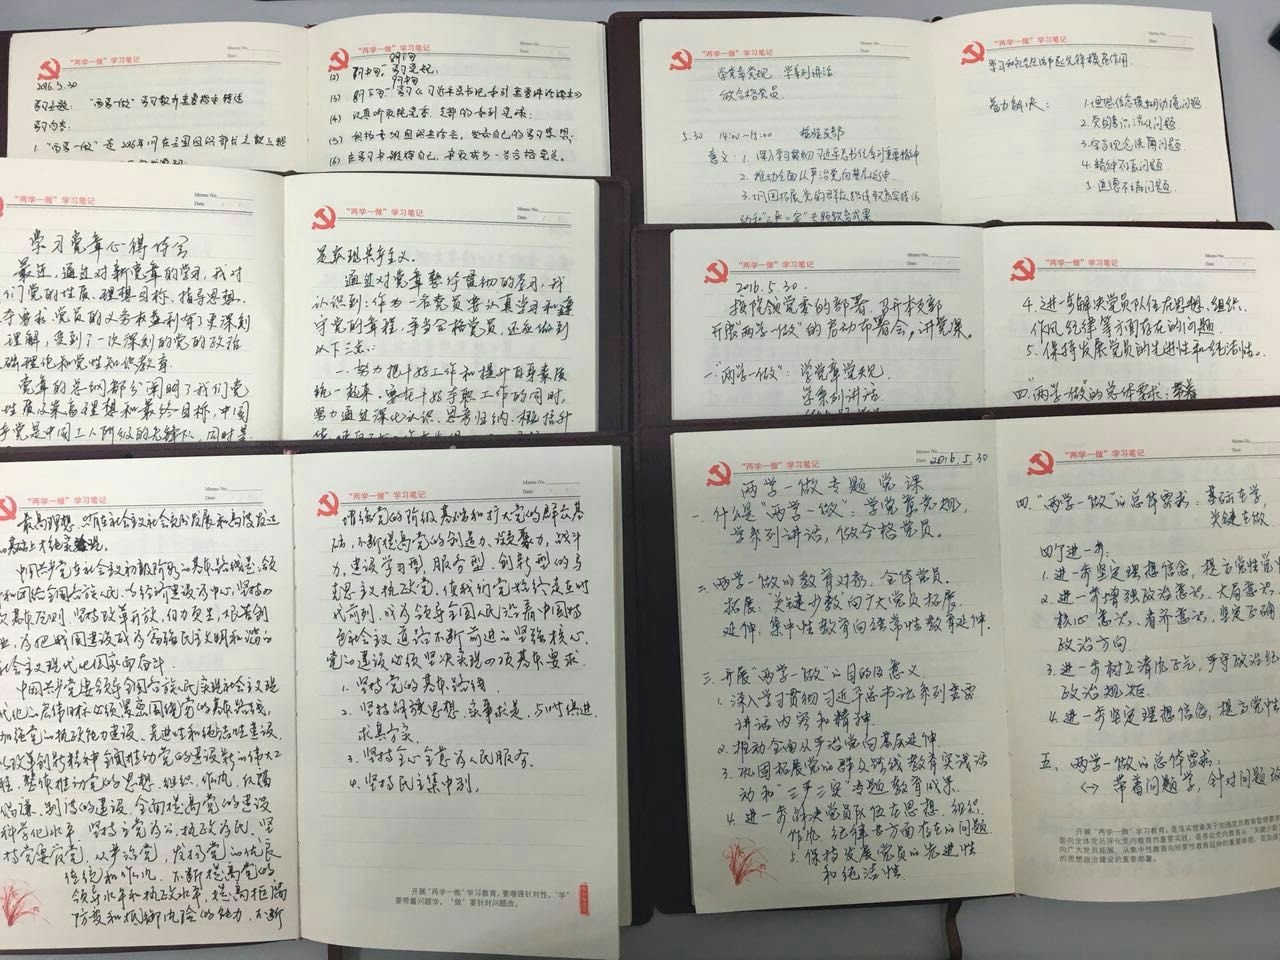 "两学一做"学习笔记
Memo No.
Date
2016.5.30
学习主题："两学一做"学习教育重要指示精神
学习内容：
"两学一做"学习笔记
Memo No.
Date
(2)
(3)
(4)
(5)
(6) 在学习中锻炼自己，争取成为一名合格党员。
"两学一做"学习笔记
Memo No.
Date
学党章党规 学系列讲话
做合格党员.
5.30 14:00~15:00
意义：1. 深入学习贯彻习近平总书记系列重要讲话精神
2. 推动全面从严治党向基层延伸
3. 巩固拓展党的群众路线教育实践活
动和"三严三实"专题教育成果
"两学一做"学习笔记
Memo No.
Date
着力解决：1. 理想信念模糊动摇问题
2. 党的意识淡化问题
3. 宗旨观念淡薄问题
4. 精神不振问题
5. 道德不端问题.
Memo No.
Date
学习党章心得体会
最近，通过对新党章的学习，我对
们党的性质、理想目标、指导思想、
理解，受到了一次深刻的党的政治
础理论和党性知识教育.
党章的总纲部分阐明了我们党
性质及崇高理想和最终目标，中国
产党是中国工人阶级的先锋队，同时是
"两学一做"学习笔记
Memo No.
Date
是实现共产主义.
通过对党章整体贯彻的学习，我
认识到：作为一名党员要认真学习和遵
守党的章程，争当合格党员，还应做到
以下三点：
一、努力把干好工作和提升自身素质
统一起来，要在干好本职工作的同时，
努力通过深化认识、思考归纳、积极提升
"两学一做"学习笔记
Memo No.
Date
2016.5.30.
按院领党委的部署，召开本支部
开展"两学一做"的启动布署会，讲党课。
一."两学一做"：学党章党规
学系列讲话
"两学一做"学习笔记
Memo No.
Date
4. 进一步解决党员队伍在思想、组织、
作风、纪律等方面存在的问题
5. 保持发展党员的先进性和纯洁性。
四."两学一做"的总体要求：带着
"两学一做"学习笔记
Memo No.
Date
最高理想只有在社会主义社会充分发展和高度发达
的基础上才能实现.
中国共产党在社会主义初级阶段的基本路线是：领
导和团结全国各族人民，以经济建设为中心，坚持四
项基本原则，坚持改革开放，自力更生，艰苦创
业，为把我国建设成为富强民主文明和谐的
社会主义现代化国家而奋斗.
中国共产党要领导全国各族人民实现社会主义现
代化的宏伟目标，必须紧密围绕党的基本路线，
加强党的执政能力建设、先进性和纯洁性建设，
以改革创新精神全面推动党的建设新的伟大工
程，整体推动党的思想、组织、作风、反腐
倡廉、制度的建设，全面提高党的建设
科学化水平. 坚持立党为公，执政为民. 坚
持党要管党，从严治党，发扬党的优良
传统和作风. 不断提高党的
领导水平和执政水平，提高拒腐
防变和抵御风险的能力，不断
"两学一做"学习笔记
Memo No.
Date
增强党的阶级基础和扩大党的群众基
础，不断提高党的创造力、凝聚力、战斗
力，建设学习型、服务型、创新型的马
克思主义执政党，使我们党始终走在时
代前列，成为领导全国人民沿着中国特
色社会主义道路不断前进的坚强核心.
党的建设必须坚决实现四项基本要求.
1. 坚持党的基本路线.
2. 坚持解放思想，实事求是，与时俱进，
求真务实.
3. 坚持全心全意为人民服务.
4. 坚持民主集中制.
开展"两学一做"学习教育，要增强针对性，"学"
要带着问题学，"做"要针对问题改。
"两学一做"学习笔记
Memo No.
Date 2016.5.30
两学一做专题党课
一. 什么是"两学一做"：学党章党规，
学系列讲话，做合格党员。
二. 两学一做的教育对象：全体党员.
拓展："关键少数"向广大党员拓展.
延伸：集中性教育向经常性教育延伸.
三. 开展"两学一做"的目的及意义.
1. 深入学习贯彻习近平总书记系列重要
讲话内容和精神.
2. 推动全面从严治党向基层延伸.
3. 巩固拓展党的群众路线教育实践活
动和"三严三实"专题教育成果.
4. 进一步解决党员队伍在思想、组织、
作风、纪律等方面存在的问题.
5. 保持发展党员的先进性
和纯洁性.
"两学一做"学习笔记
Memo No.
Date
四."两学一做"的总体要求：基础在学，
关键在做.
四个进一步：
1. 进一步坚定理想信念，提高党性觉
2. 进一步增强政治意识、大局意识、
核心意识、看齐意识，坚定正确
政治方向.
3. 进一步树立清风正气，严守政治纪
政治规矩.
4. 进一步坚定理想信念，提高党性
五. 两学一做的总体要求：
<一> 带着问题学，针对问题改
开展"两学一做"学习教育，是落实党章关于加强党员教育管理要求
面向全体党员深化党内教育的重要实践，是推动党内教育从"关键少数"
向广大党员拓展、从集中性教育向经常性教育延伸的重要举措，是加强党
的思想政治建设的重要部署。